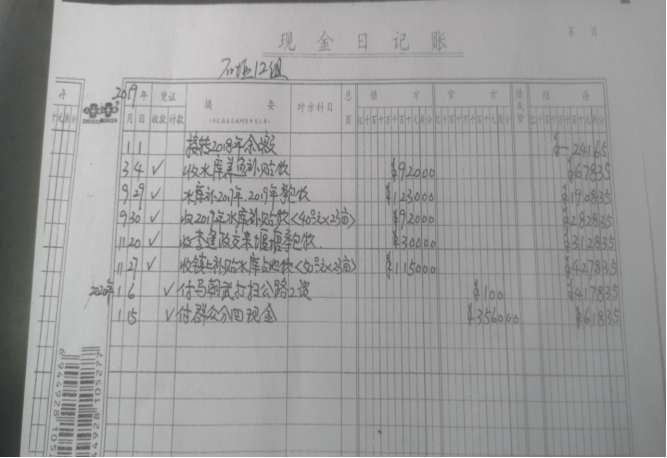 现金日记账
第 页
12组
2019年 凭证 摘要 对方科目 总页 借方 贷方 借或贷 结存
月 日 收款 付款
1 1 接转2018年余缴 ¥-24165
3 4 ✓ 收水库养鱼补贴款 ¥92000 ¥67835
9 29 ✓ 水库补2017年、2019年承包款 ¥123000 ¥190835
9 30 ✓ 收2017年水库补贴款<40元×23亩> ¥92000 ¥282835
11 20 ✓ 收李建政交来堰塘承包款 ¥30000 ¥312835
11 27 ✓ 收镇上补贴水库款<50元×23亩> ¥115000 ¥427835
2020年 1 6 ✓ 付马朝武打扫公路工资 ¥100 ¥417835
1 15 ✓ 付群众分田现金 ¥356000 ¥61835
9 944928 105277